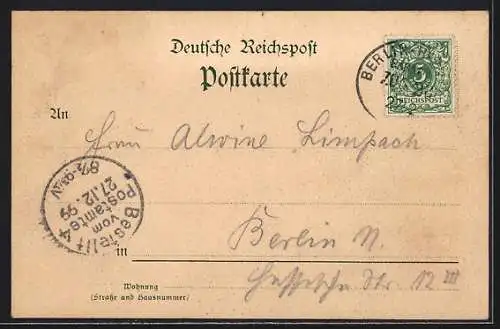 Deutsche Reichspost
Postkarte
BERLIN
5
REICHSPOST
An
Frau Alwine Limpach
Bestellt
vom
Postamte 4
27.12.99
in
Berlin N.
Hessische Str. 12 III
Wohnung
(Straße und Hausnummer)